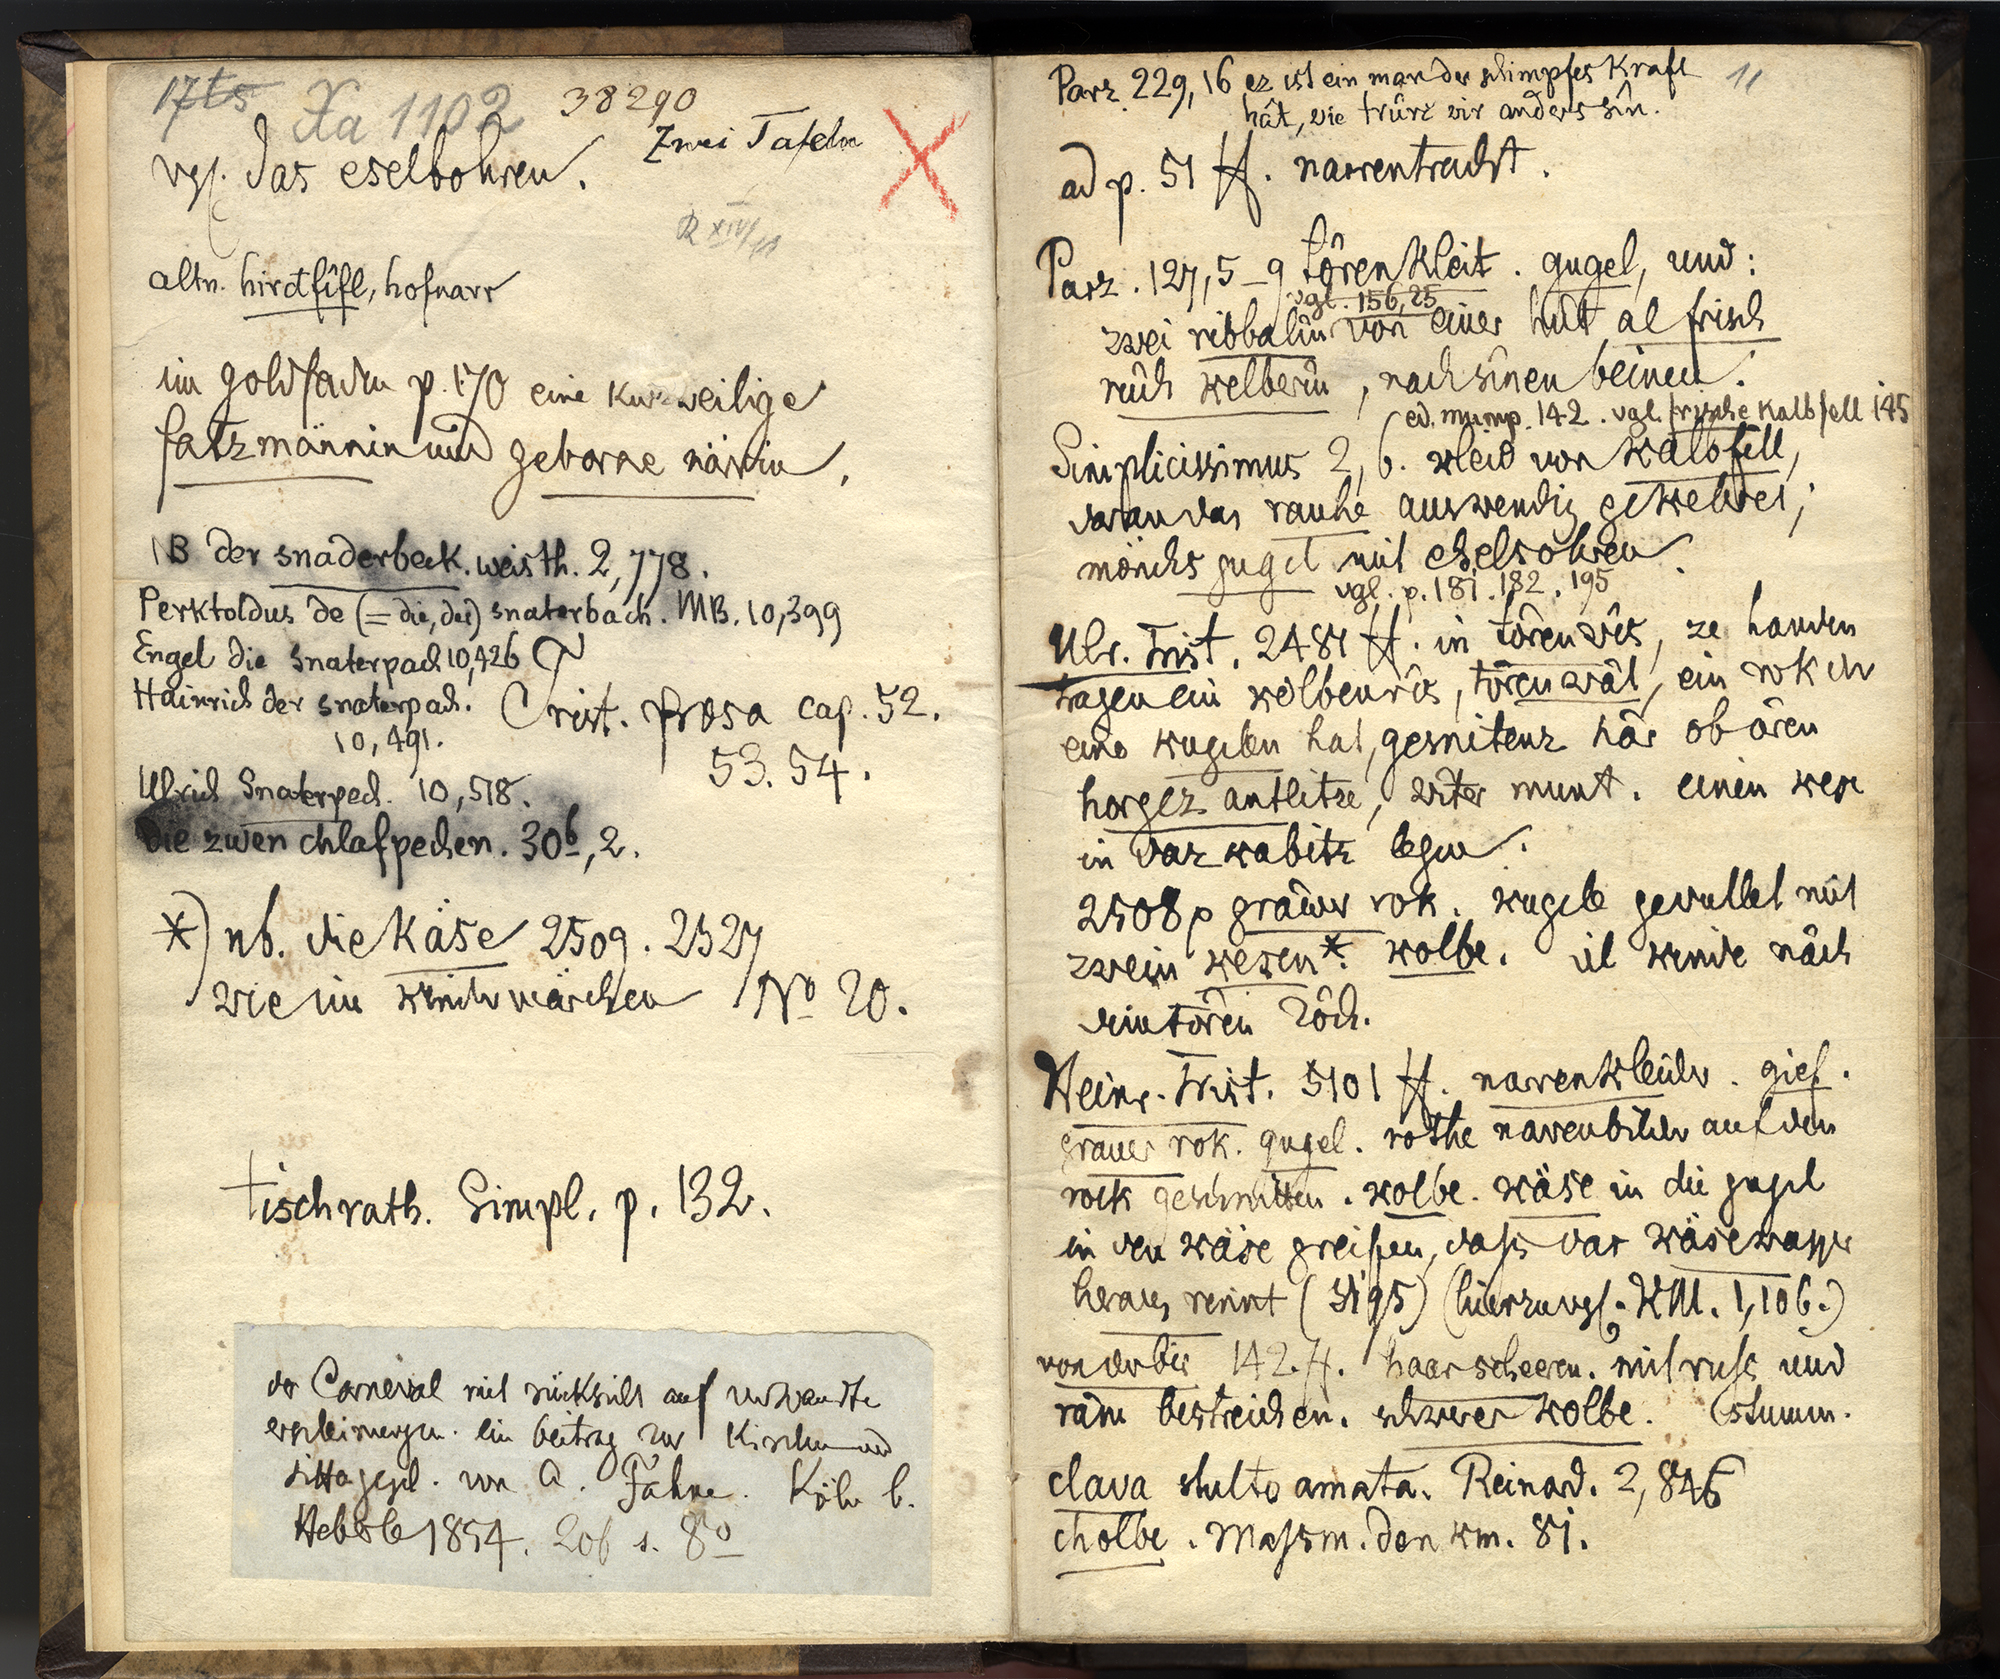 17ts
Xa 1102
38290
Zwei Tafeln
vgl. das eselbohren.
R XIV/11
altn. hirdfífl, hofnarr
im goldfaden p. 170 eine kurzweilige
fatzmännin und geborne närrin.
B der snaderbeck. weisth. 2,778.
Perktoldus de (= die, der) snaterbach. MB. 10,399
Engel die snaterpach 10,426
Hainrich der snaterpach.
10,491.
Trist. prosa cap. 52.
53. 54.
Ulrich Snaterpech. 10,518.
die zwen chlafpechen. 30b, 2.
*) nb. die käse 2509. 2527
wie im kindermärchen No 20.
tischrath. Simpl. p. 132.
der Carneval mit rücksicht auf verwandte
erscheinungen. ein beitrag zur Kirchen und
sittengesch. von A. Fahne. Köln b.
Heberle 1854. 206 s. 8o
Parz. 229,16 ez ist ein man der schimpfes kraft
hât, wie trûrc wir anders sîn.
11
ad p. 51 ff. narrentracht.
Parz. 127,5-9 tôren kleit. gugel, und:
vgl. 156,25
zwei ribbalîn von einer hût al frisch
rûch kelberîn, nach sînen beinen.
ed. mump. 142. vgl. frische kalbfell 145
Simplicissimus 2, 6. kleid von kalbfell,
daran das rauhe auswendig gekehret;
mönchs gugel mit eselsohren.
vgl. p. 181. 182. 195
Ulr. Trist. 2481 ff. in tôren wîs, ze handen
tragen ein kolben rîs, tôren wât, ein rok der
eine kugelen hat, gesnitenz hâr ob ôren
horgez antlitze, witer munt. einen kese
in daz kabitz legen.
2508 grâwer rok. kugele gevullet mit
zwein kesen*. kolbe. il kinde nâch
dem tôren zôch.
Heinr. Trist. 5101 ff. narrenkleider. gief.
grauer rok. gugel. rothe narrenbilder auf den
rock geschnitten. kolbe. käse in die gugel
in den käse greifen, dass das käsewasser
heraus rinnt (5195) (hierzu vgl. KM. 1,106.)
von der bir 142 ff. haar scheeren. mit russ und
râm bestreichen. schwerer kolbe. (stumm.
clava stulto amata. Reinard. 2,846
cholbe. Massm. denkm. 81.